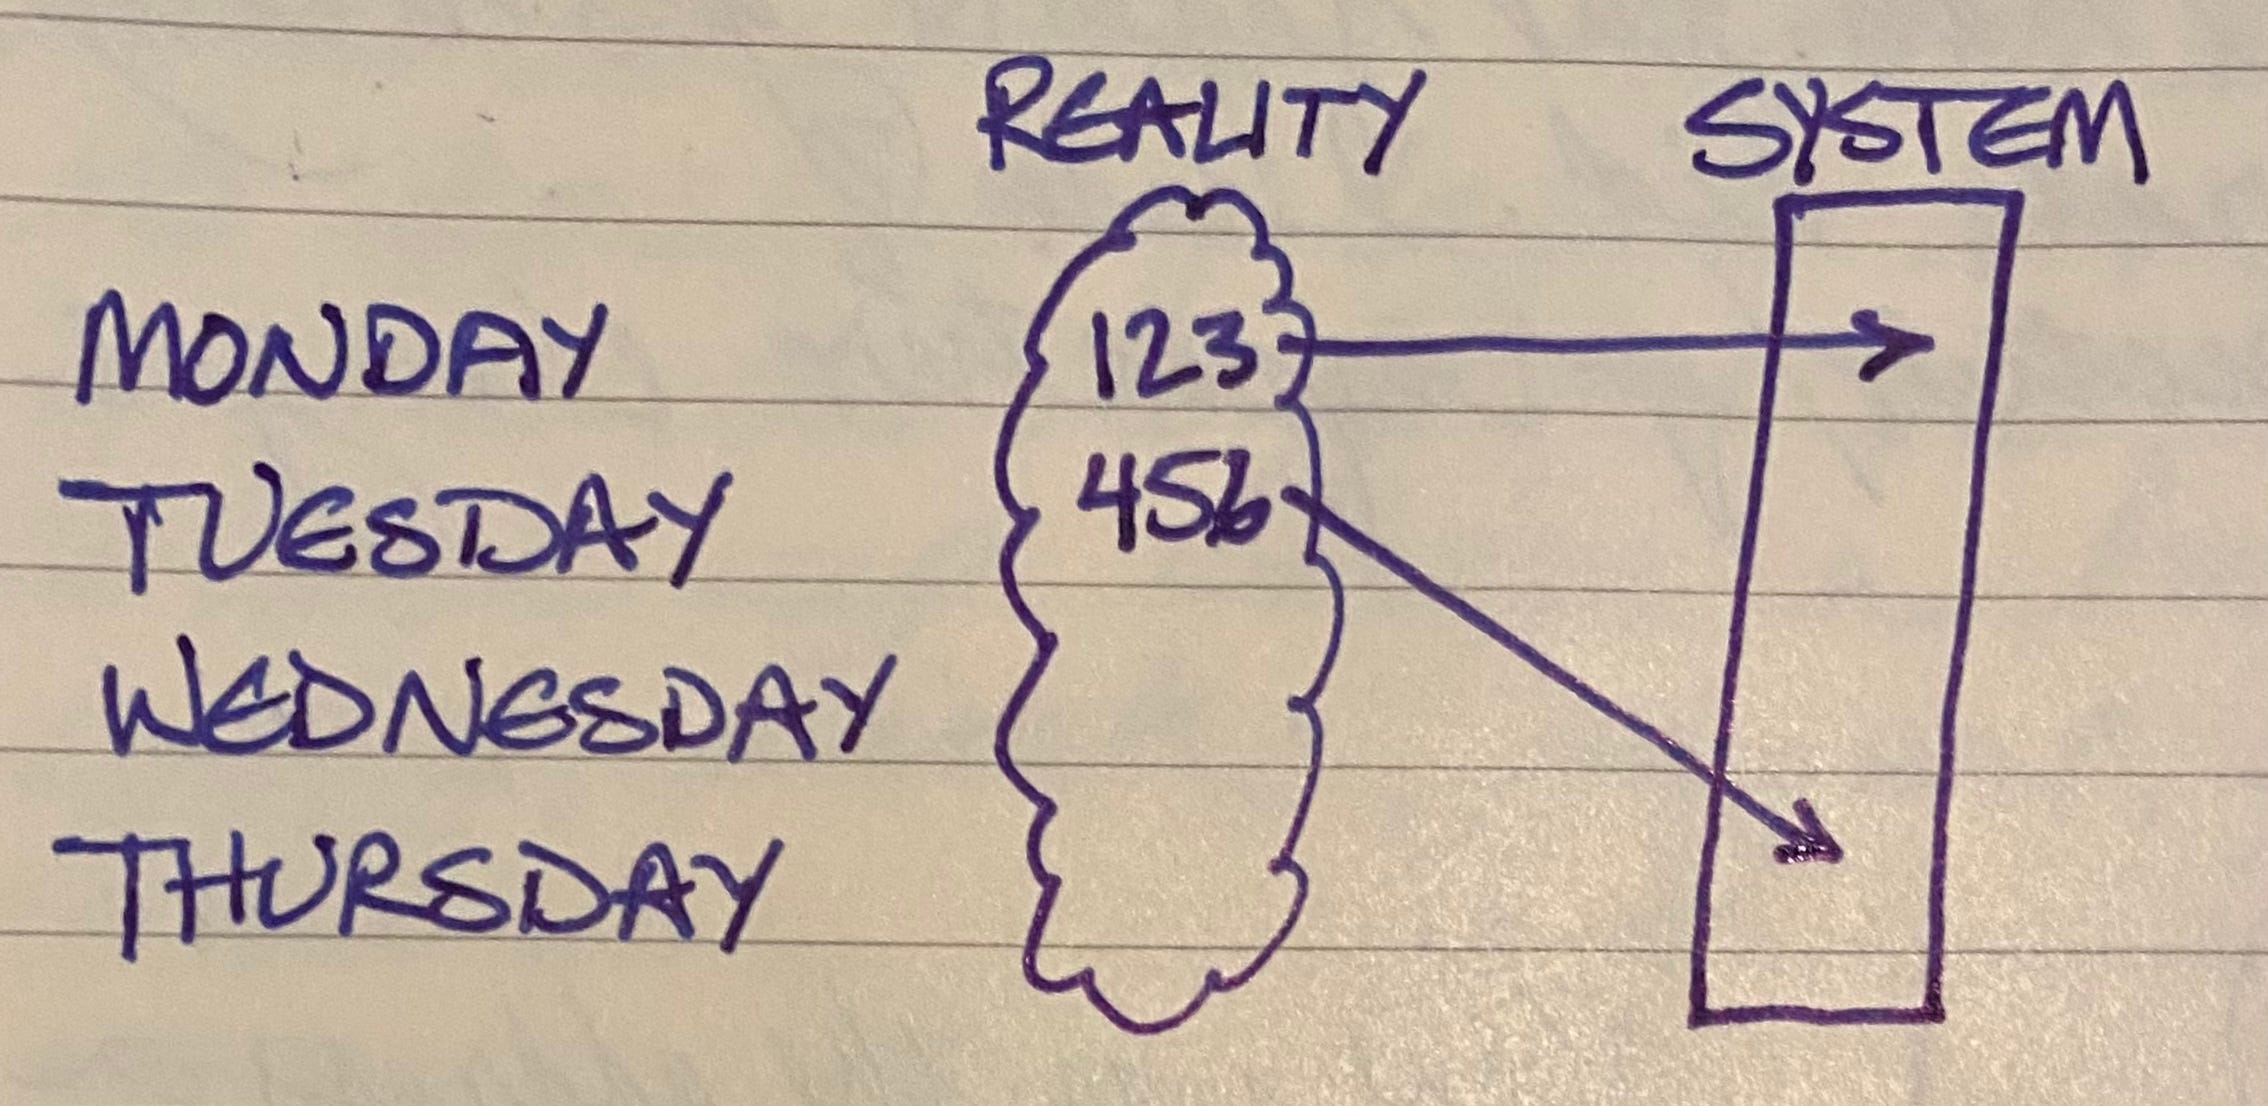 REALITY SYSTEM
MONDAY 123
TUESDAY 456
WEDNESDAY
THURSDAY